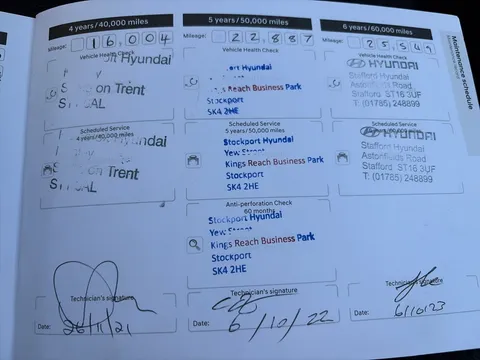 4 years/40,000 miles
Mileage: 16,004
Vehicle Health Check
on Hyundai
on Trent
Scheduled Service
4 years/40,000 miles
on Trent
Technician's signature
Date: 26/11/21
5 years/50,000 miles
Mileage: 22887
Vehicle Health Check
ort Hyundai
Kings Reach Business Park
Stockport
SK4 2HE
Scheduled Service
5 years/50,000 miles
Stockport Hyundai
Yew Street
Kings Reach Business Park
Stockport
SK4 2HE
Anti-perforation Check
60 months
Stockport Hyundai
Kings Reach Business Park
Stockport
SK4 2HE
Technician's signature
Date: 6/10/22
6 years/60,000 miles
Mileage: 25,549
Vehicle Health Check
HYUNDAI
Stafford Hyundai
Astonfields Road
Stafford ST16 3UF
T: (01785) 248899
HYUNDAI
Stafford Hyundai
Astonfields Road
Stafford ST16 3UF
T: (01785) 248899
Technician's signature
Date: 6/10/23
Maintenance schedule